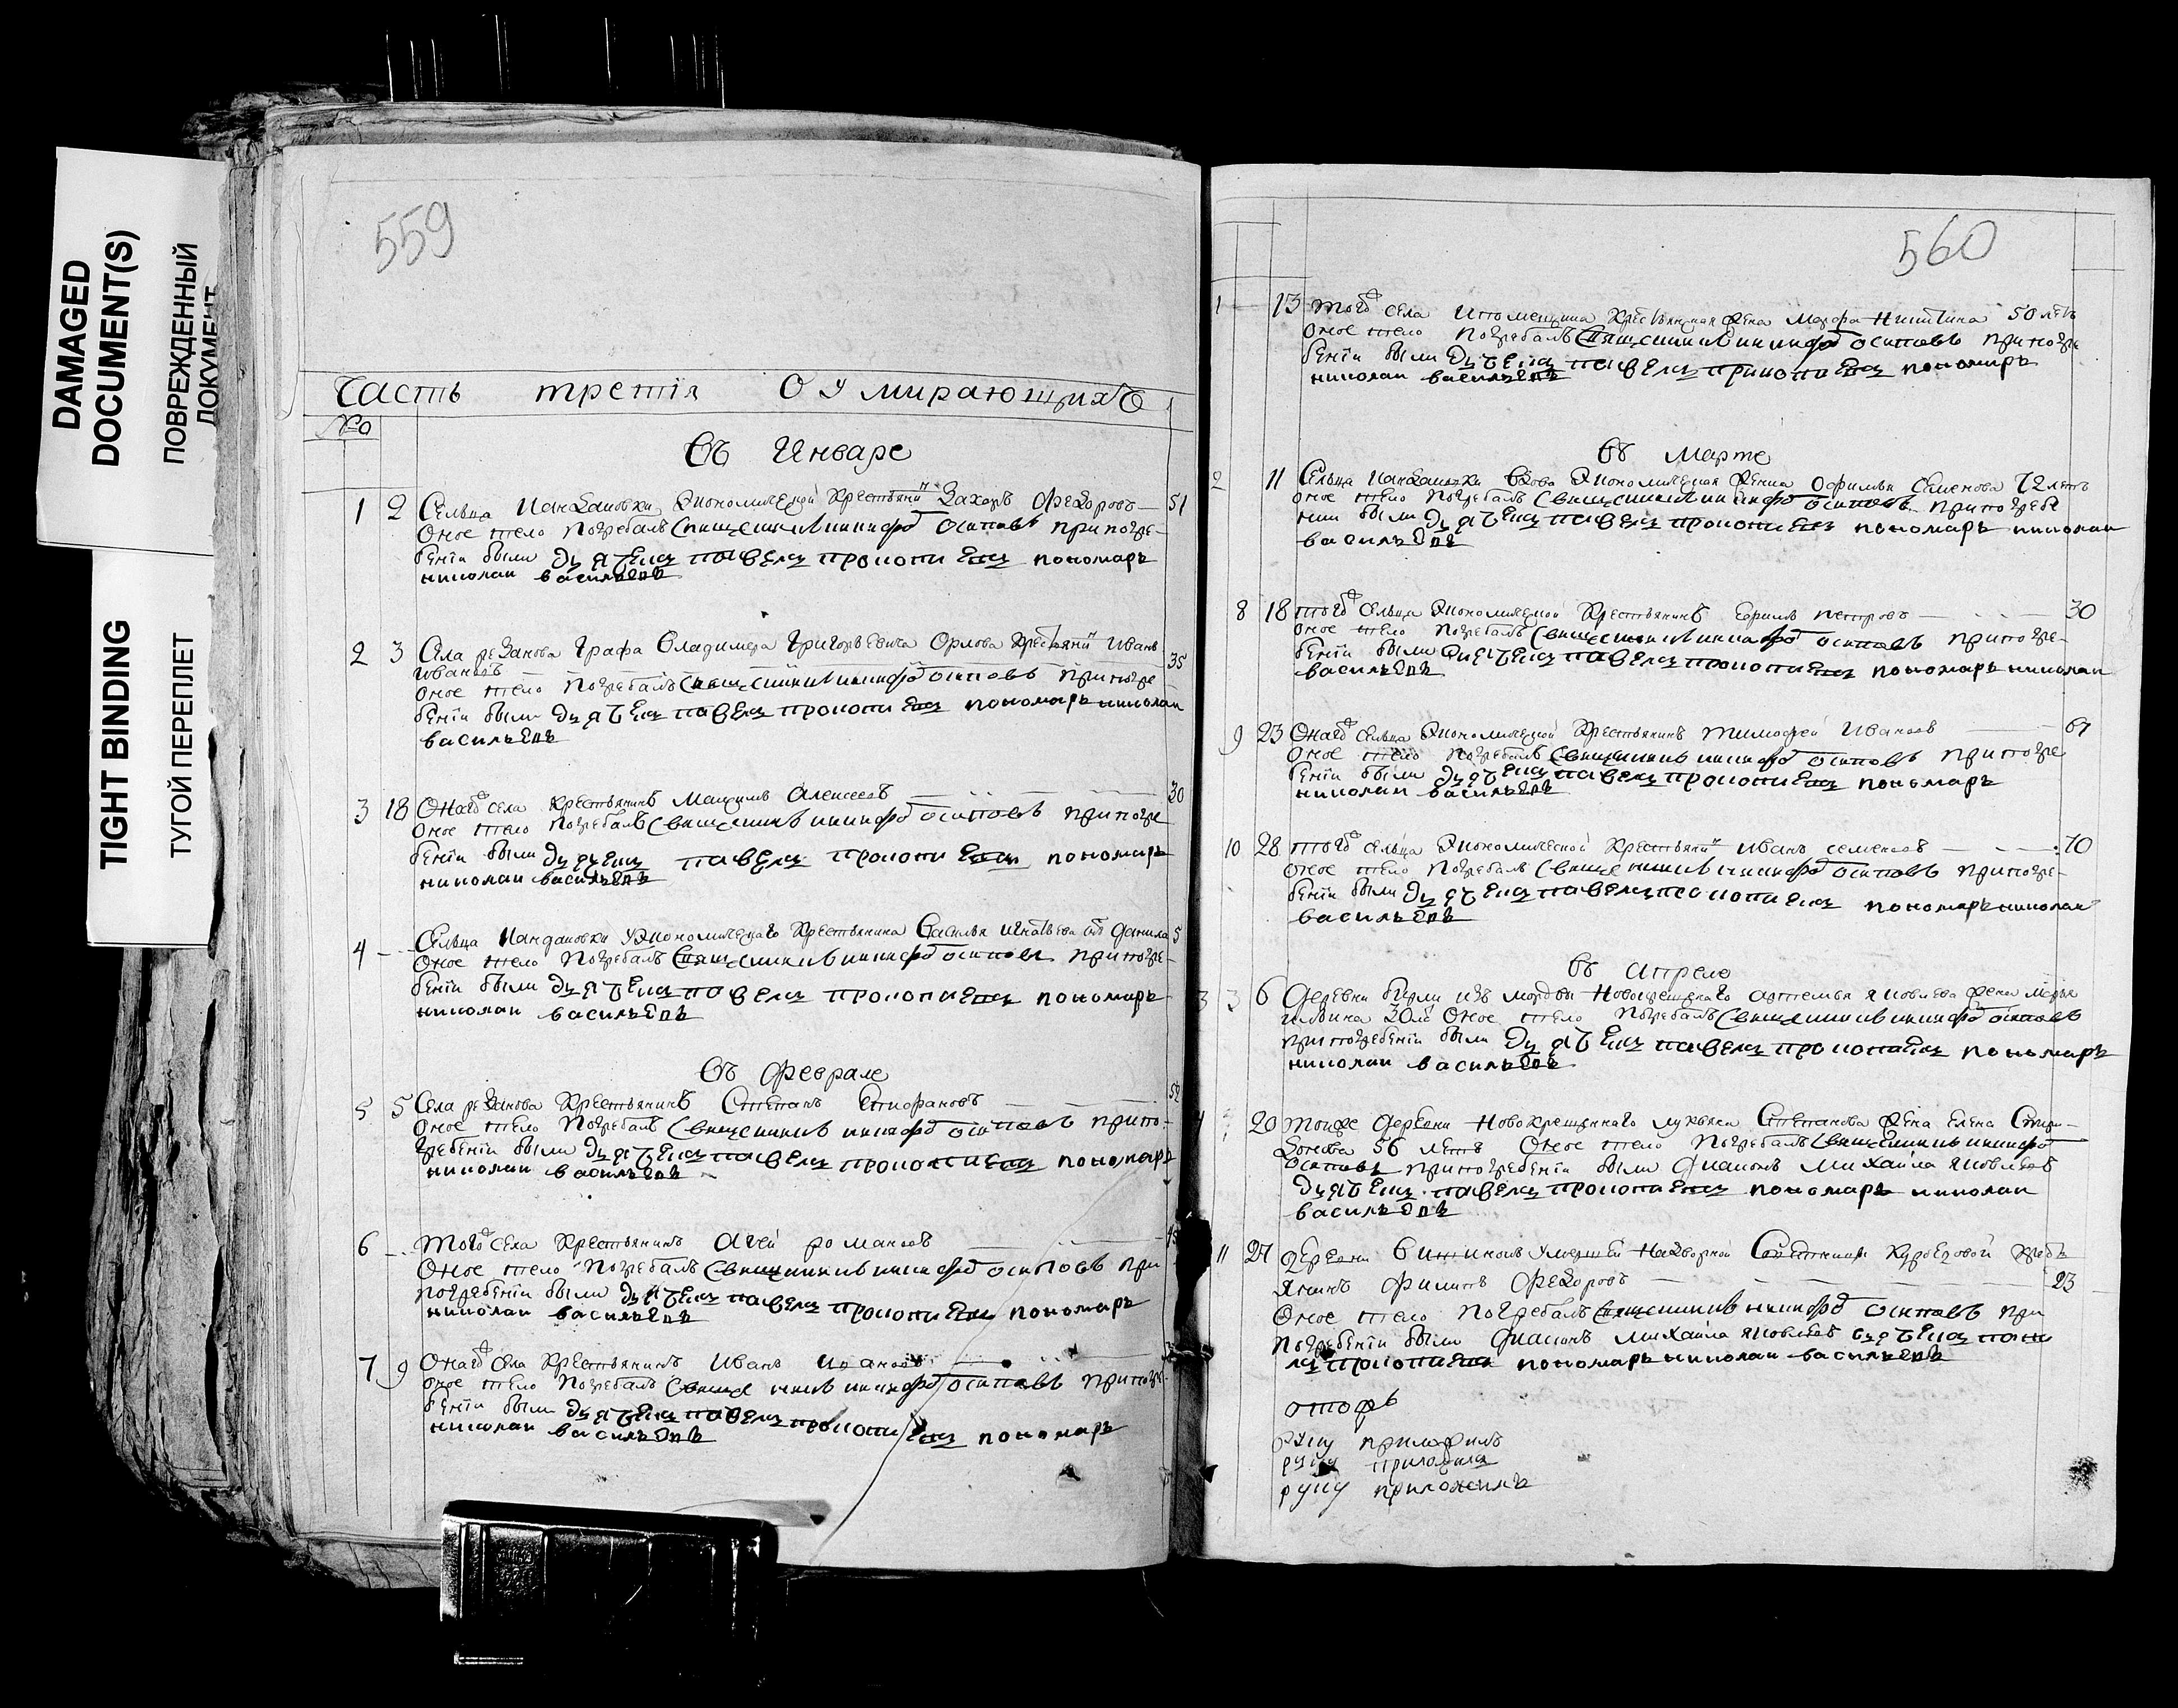 DAMAGED
DOCUMENT(S)
ПОВРЕЖДЕННЫЙ
ДОКУМЕНТ
TIGHT BINDING
ТУГОЙ ПЕРЕПЛЕТ
559
Часть третія О умирающихъ
№
Въ Январе
1 2 Сельца Экономической Крестьянинъ Захаръ Федоровъ 51
Оное тело Погребалъ Священникъ никифоръ осиповъ при погре-
бении были дьячекъ павелъ прокопиевъ пономарь
николаи васильевъ
2 3 Села резанова Графа Владимера Григорьевича Орлова Крестьянинъ Иванъ
Ивановъ 35
Оное тело Погребалъ Священникъ никифоръ осиповъ при погре
бении были дьячекъ павелъ прокопиевъ пономарь николаи
васильевъ
3 18 Онагожъ села Крестьянинъ Максимъ Алексеевъ 30
Оное тело Погребалъ Священникъ никифоръ осиповъ при погре
бении были дьячекъ павелъ прокопиевъ пономарь
николаи васильевъ
4 Сельца Экономическаго Крестьянина Василья Игнатьева сынъ Данила 5
Оное тело Погребалъ Священникъ никифоръ осиповъ при погре-
бении были дьячекъ павелъ прокопиевъ пономарь
николаи васильевъ
Въ Феврале
5 5 Села резанова Крестьянинъ Степанъ Епифановъ
Оное тело Погребалъ Священникъ никифоръ осиповъ при по-
гребении были дьячекъ павелъ прокопиевъ пономарь
николаи васильевъ
6 Тогожъ села Крестьянинъ Агей романовъ
Оное тело Погребалъ Священникъ никифоръ осиповъ при
погребении были дьячекъ павелъ прокопиевъ пономарь
николаи васильевъ
7 9 Онагожъ села Крестьянинъ Иванъ Ивановъ
Оное тело Погребалъ Священникъ никифоръ осиповъ при погре-
бении были дьячекъ павелъ прокопиевъ пономарь
николаи васильевъ
560
1 13 Тогожъ села жена Марфа Никитина 50 летъ
Оное тело Погребалъ Священникъ никифоръ осиповъ при погре
бении были дьячекъ павелъ прокопиевъ пономарь
николаи васильевъ
Въ Марте
2 11 Сельца вдова Экономическая жена Офимья Семенова 72 летъ
оное тело Погребалъ Священникъ никифоръ осиповъ при погребе
нии были дьячекъ павелъ прокопиевъ пономарь николаи
васильевъ
8 18 тогожъ сельца Экономической Крестьянинъ петровъ 30
Оное тело Погребалъ Священникъ никифоръ осиповъ при погре-
бении были дьячекъ павелъ прокопиевъ пономарь николаи
васильевъ
9 23 Онагожъ сельца Экономической Крестьянинъ Тимофей Ивановъ 67
Оное тело Погребалъ Священникъ никифоръ осиповъ при погре
бении были дьячекъ павелъ прокопиевъ пономарь
николаи васильевъ
10 28 тогожъ сельца Экономической Крестьянинъ Иванъ семеновъ 70
Оное тело Погребалъ Священникъ никифоръ осиповъ при погре-
бении были дьячекъ павелъ прокопиевъ пономарь николаи
васильевъ
Въ Апреле
3 6 Деревни Бирли изъ мордвы Новокрещенаго артемья яковлева жена марья
30 ле Оное тело Погребалъ Священникъ никифоръ осиповъ
при погребении были дьячекъ павелъ прокопиевъ пономарь
николаи васильевъ
4 20 Тоижъ деревни Новокрещеннаго лукьяна Степанова жена Елена Спири-
донова 56 летъ Оное тело Погребалъ Священникъ никифоръ
осиповъ при погребении были Диаконъ Михайла яковлевъ
дьячекъ павелъ прокопиевъ пономарь николаи
васильевъ
11 27 Деревни Надворной Советницы Куроедовой крес
янинъ Филипъ Федоровъ 23
Оное тело Погребалъ Священникъ никифоръ осиповъ при
погребении были Диаконъ Михайла яковлевъ дьячекъ паве
лъ прокопиевъ пономарь николаи васильевъ
руку приложилъ
руку приложилъ
руку приложилъ